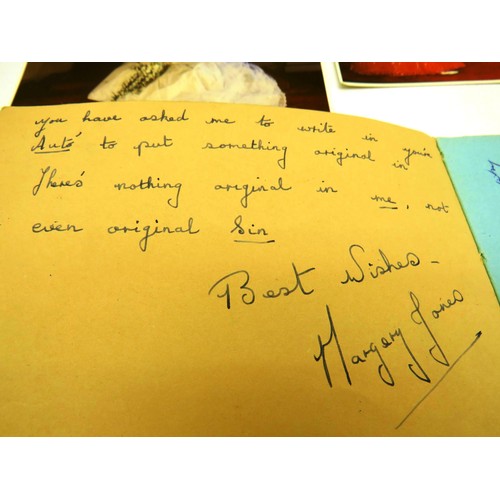 you have asked me to write in you're
Auto' to put something original in
There's nothing original in me, not
even original Sin
Best Wishes -
Margery Jones